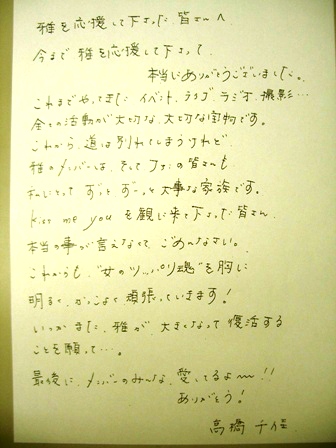 雅を応援して下さった皆さんへ
今まで雅を応援して下さって
本当にありがとうございました。
これまでやってきたイベント、ライブ、ラジオ、撮影…
全ての活動が大切な、大切な宝物です。
これから、道は別れてしまうけれど、
雅のメンバーは、そして の皆さんも
私にとって ずっと ずーっと 大事な家族です。
kiss me you を観に来て下さった皆さん
本当の事が言えなくて ごめんなさい。
これからも "女のツッパリ魂"を胸に
明るく、かっこよく頑張っていきます!
いつかまた、雅が、大きくなって 復活する
ことを願って…。
最後に、メンバーのみんな、愛してるよ〜!!
ありがとう!
高橋 千佳